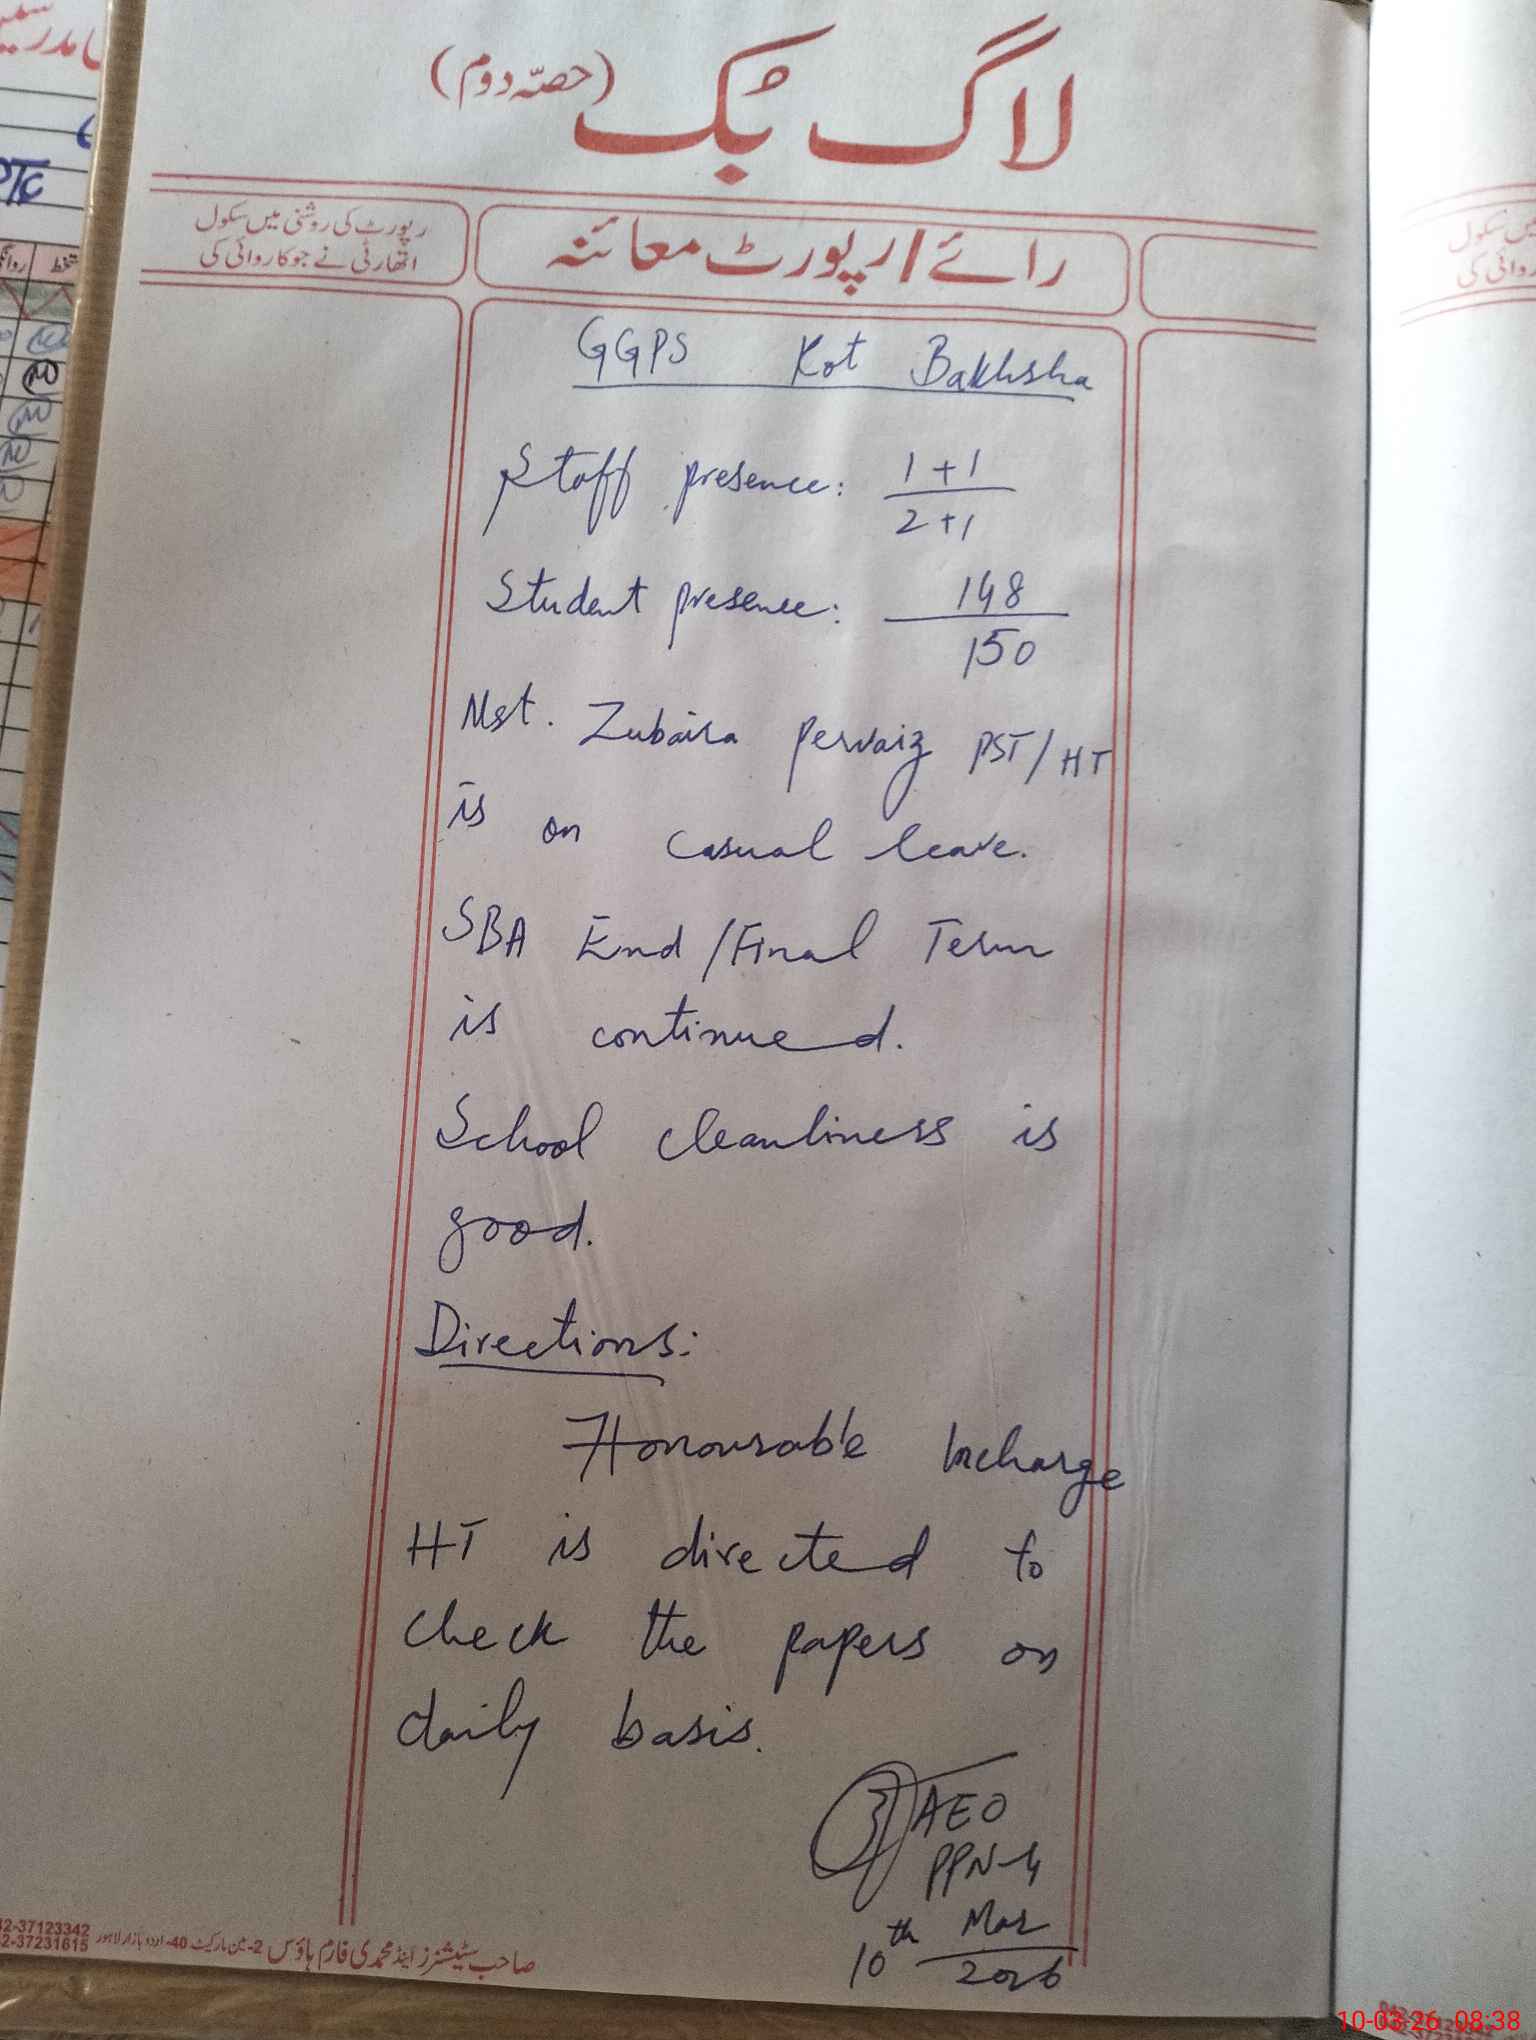 لاگ بک (حصّہ دوم)
رائے / رپورٹ معائنہ
رپورٹ کی روشنی میں سکول
اتھارٹی نے جو کاروائی کی
GGPS Kot Bakhsha
Staff presence: 1+1
2+1
Student presence: 148
150
Mst. Zubaira pervaiz PST/HT
is on casual leave.
SBA End/Final Term
is continued.
School cleanliness is
good.
Directions:
Honourable Incharge
HT is directed to
check the papers on
daily basis.
AEO
PPN-4
10th Mar
2026
صاحب سٹیشنرز اینڈ محمدی فارم ہاؤس 2-مین مارکیٹ 40-اردو بازار لاہور
2-37123342
2-37231615
PTC
میں سکول
روائی کی
10-03-26 08:38